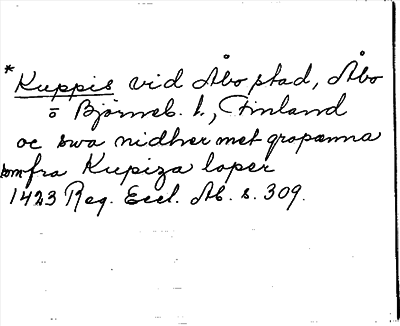 *Kuppis vid Åbo stad, Åbo
o Björneb. l., Finland
oc swa nidher met gropænna
som fra Kupiza loper
1423 Reg. Eccl. Ab. s. 309.